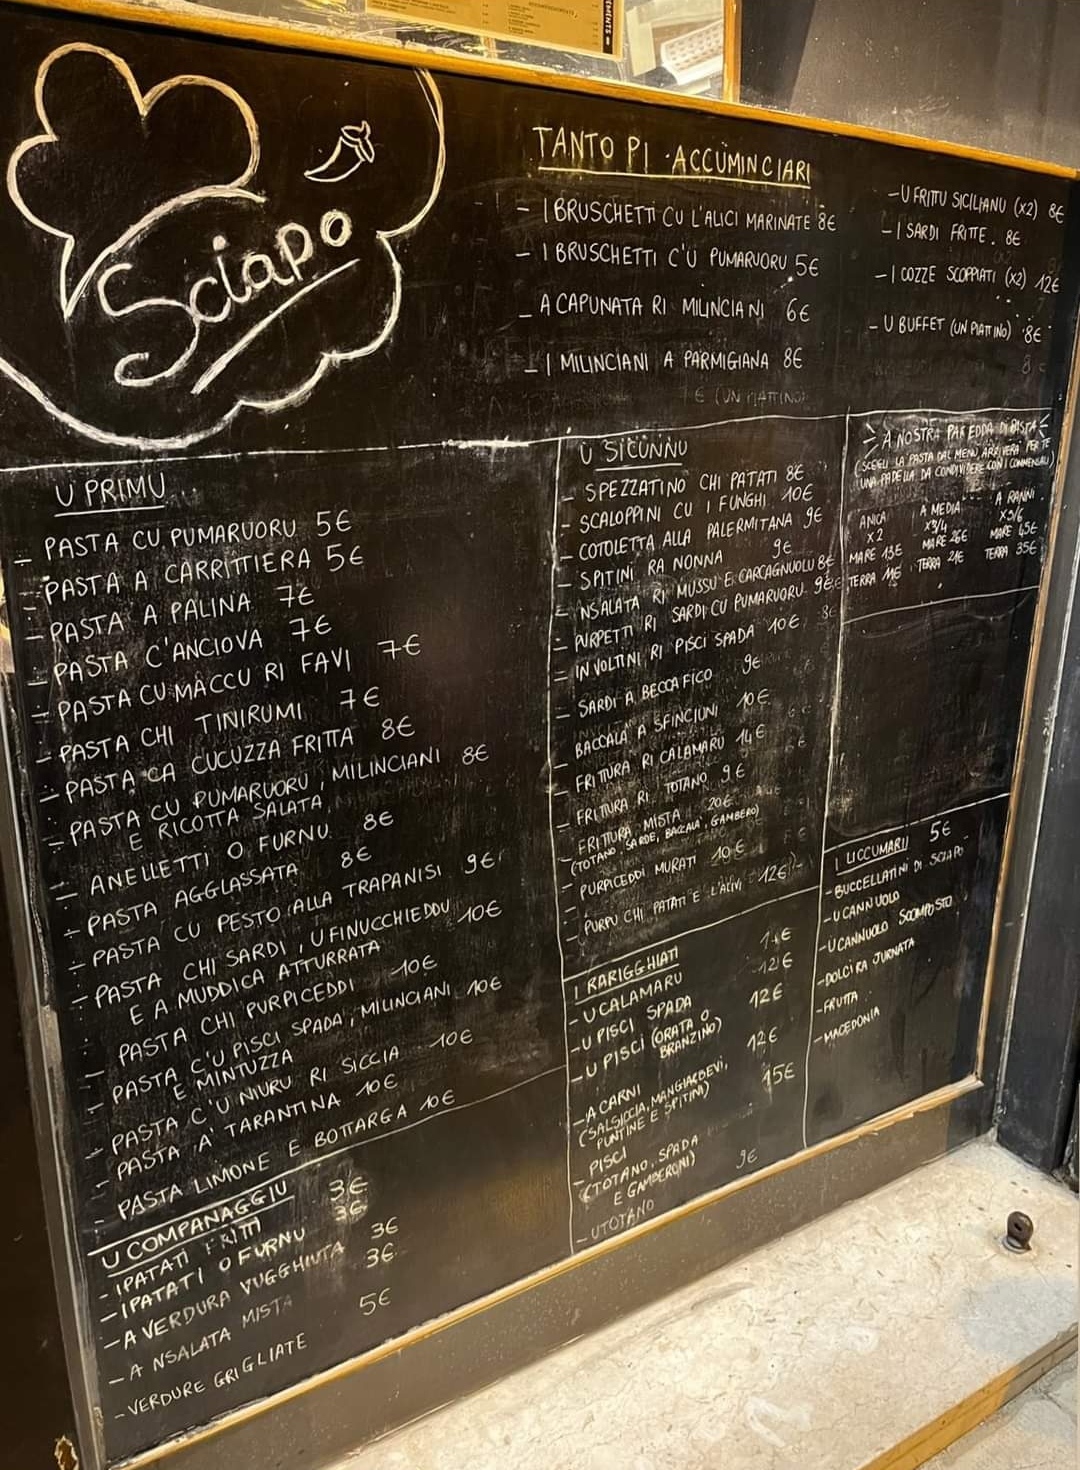 Sciapo
TANTO PI ACCUMINCIARI
- I BRUSCHETTI CU L'ALICI MARINATE 8€
- I BRUSCHETTI C'U PUMARUORU 5€
- A CAPUNATA RI MILINCIANI 6€
- I MILINCIANI A PARMIGIANA 8€
- U FRITTU SICILIANU (x2) 8€
- I SARDI FRITTE. 8€
- I COZZE SCOPPIATI (x2) 12€
- U BUFFET (UN PIATTINO) 8€
U PRIMU
- PASTA CU PUMARUORU 5€
- PASTA A CARRITTIERA 5€
- PASTA A PALINA 7€
- PASTA C'ANCIOVA 7€
- PASTA CU MACCU RI FAVI 7€
- PASTA CHI TINIRUMI 7€
- PASTA CA CUCUZZA FRITTA 8€
- PASTA CU PUMARUORU, MILINCIANI 8€
E RICOTTA SALATA
- ANELLETTI O FURNU 8€
- PASTA AGGLASSATA 8€
- PASTA CU PESTO ALLA TRAPANISI 9€
- PASTA CHI SARDI, U FINUCCHIEDDU 10€
E A MUDDICA ATTURRATA
- PASTA CHI PURPICEDDI 10€
- PASTA C'U PISCI SPADA, MILINCIANI 10€
E MINTUZZA
- PASTA C'U NIURU RI SICCIA 10€
- PASTA A' TARANTINA 10€
- PASTA LIMONE E BOTTARGA 10€
U COMPANAGGIU
- I PATATI FRITTI 3€
- I PATATI O FURNU 3€
- A VERDURA VUGGHIUTA 3€
- A NSALATA MISTA 3€
- VERDURE GRIGLIATE 5€
U SICUNNU
- SPEZZATINO CHI PATATI 8€
- SCALOPPINI CU I FUNGHI 10€
- COTOLETTA ALLA PALERMITANA 9€
- SPITINI RA NONNA 9€
- NSALATA RI MUSSU E CARCAGNUOLU 8€
- PURPETTI RI SARDI CU PUMARUORU 9€
- INVOLTINI RI PISCI SPADA 10€
- SARDI A BECCAFICO 9€
- BACCALÀ A SFINCIUNI 10€
- FRITTURA RI CALAMARU 14€
- FRITTURA RI TOTANO 9€
- FRITTURA MISTA 20€
(TOTANO, SARDE, BACCALÀ, GAMBERO)
- PURPICEDDI MURATI 10€
- PURPU CHI PATATI E L'ALIVI 12€
I RARIGGHIATI
- U CALAMARU 14€
- U PISCI SPADA 12€
- U PISCI (ORATA O 12€
BRANZINO)
- A CARNI 12€
(SALSICCIA, MANGIAEBEVI,
PUNTINE E SPITINI)
- PISCI 15€
(TOTANO, SPADA
E GAMBERONI)
- U TOTANO 9€
A NOSTRA PAREDDA DI PASTA
(SCEGLI LA PASTA DAL MENÙ ARRIVERÀ PER TE
UNA PADELLA DA CONDIVIDERE CON I COMMENSALI)
ANICA A MEDIA A RANNI
x2 x3/4 x5/6
MARE 13€ MARE 26€ MARE 45€
TERRA 11€ TERRA 21€ TERRA 35€
I LICCUMARII 5€
- BUCCELLATINI DI SCIAPO
- U CANNUOLO
- U CANNUOLO SCOMPOSTO
- DOLCI RA JURNATA
- FRUTTA
- MACEDONIA